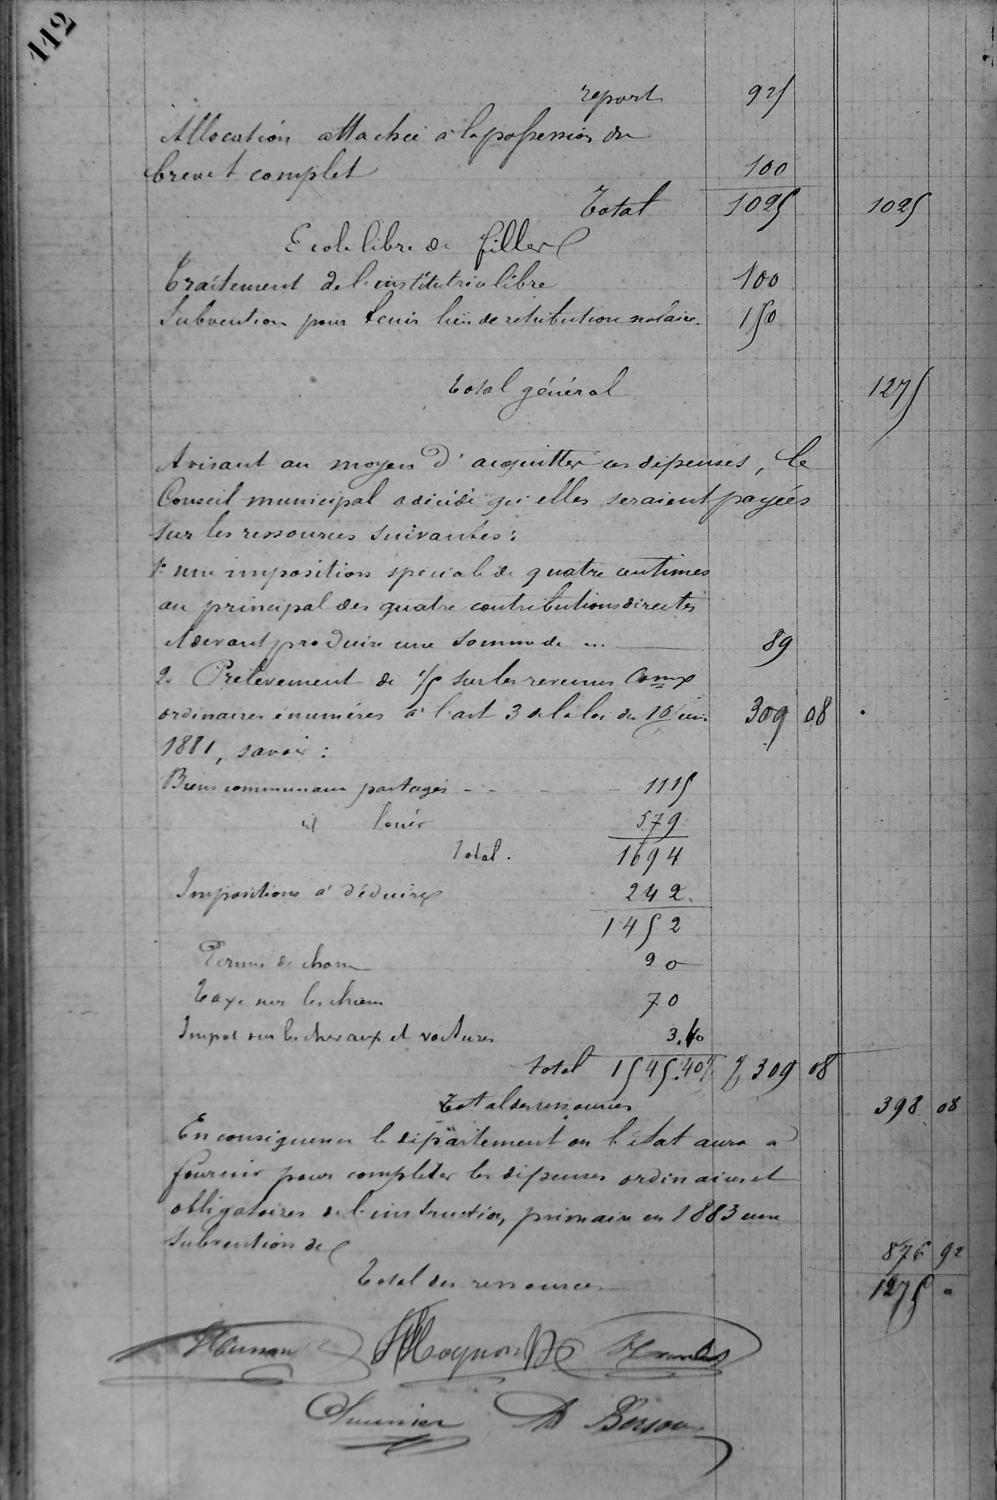 112
report 925
Allocation attachée à la possession du
brevet complet 100
Total 1025 1025
Ecole libre de filles
Traitement de l'institutrice libre 100
Subvention pour tenir lieu de rétribution scolaire. 150
Total général 1275
Avisant au moyen d'acquitter ces dépenses, le
Conseil municipal a décidé qu'elles seraient payées
sur les ressources suivantes :
1° une imposition spéciale de quatre centimes
au principal des quatre contributions directes
et devant produire une somme de ... 89
2° Prélèvement de 1/5 sur les revenus Comx
ordinaires énumérés à l'art 3 de la loi du 16 juin 309 08
1881, savoir :
Biens communaux partagés - - - 1115
id loués 579
Total. 1694
Impositions à déduire 242.
1452
Permis de chasse 20
Taxe sur les chiens 70
Impot sur les chevaux et voitures 3.40
total 1545.40 309 08
Total des ressources 398 08
En conséquence le département ou l'état aura à
fournir pour compléter les dépenses ordinaires et
obligatoires de l'instruction primaire en 1883 une
subvention de 876 92
Total des ressources 1275 "
Saunier